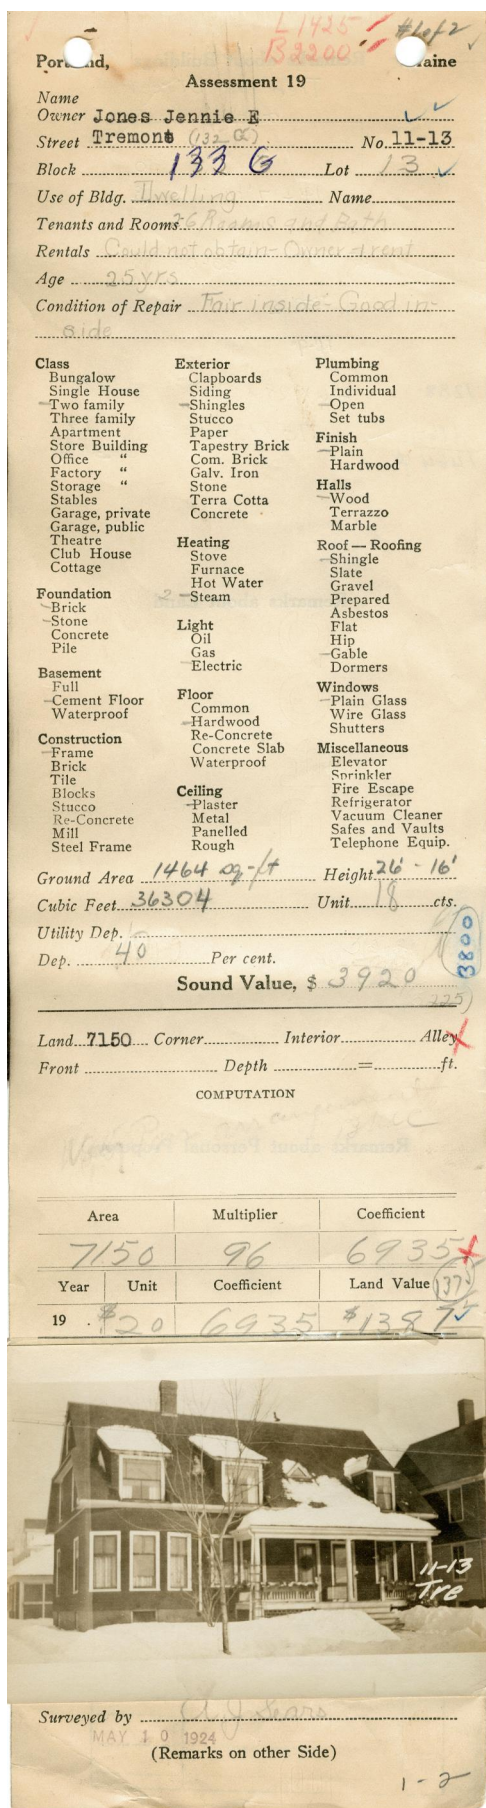 L 1425
B 2200
# 1 of 2
Portland, Maine
Assessment 19
Name
Owner Jones Jennie E
Street Tremont (132 ) No. 11-13
Block 133 G Lot 13
Use of Bldg. Dwelling Name
Tenants and Rooms 26 Rooms and Bath
Rentals Could not obtain - Owner & rent
Age 25 yrs
Condition of Repair Fair inside - Good in-
side
Class
Bungalow
Single House
Two family
Three family
Apartment
Store Building
Office "
Factory "
Storage "
Stables
Garage, private
Garage, public
Theatre
Club House
Cottage
Foundation
Brick
Stone
Concrete
Pile
Basement
Full
Cement Floor
Waterproof
Construction
Frame
Brick
Tile
Blocks
Stucco
Re-Concrete
Mill
Steel Frame
Exterior
Clapboards
Siding
Shingles
Stucco
Paper
Tapestry Brick
Com. Brick
Galv. Iron
Stone
Terra Cotta
Concrete
Heating
Stove
Furnace
Hot Water
2 Steam
Light
Oil
Gas
Electric
Floor
Common
Hardwood
Re-Concrete
Concrete Slab
Waterproof
Ceiling
Plaster
Metal
Panelled
Rough
Plumbing
Common
Individual
Open
Set tubs
Finish
Plain
Hardwood
Halls
Wood
Terrazzo
Marble
Roof — Roofing
Shingle
Slate
Gravel
Prepared
Asbestos
Flat
Hip
Gable
Dormers
Windows
Plain Glass
Wire Glass
Shutters
Miscellaneous
Elevator
Sprinkler
Fire Escape
Refrigerator
Vacuum Cleaner
Safes and Vaults
Telephone Equip.
Ground Area 1464 sq-ft Height 26' - 16'
Cubic Feet 36304 Unit 18 cts.
Utility Dep.
Dep. 40 Per cent.
3800
Sound Value, $ 3920
225)
Land 7150 Corner Interior Alley
Front Depth = ft.
COMPUTATION
Area Multiplier Coefficient
7150 96 6935
Year Unit Coefficient Land Value 1375
19 . $20 6935 $1387
11-13
Tre
Surveyed by A J Sears
MAY 10 1924
(Remarks on other Side)
1-2